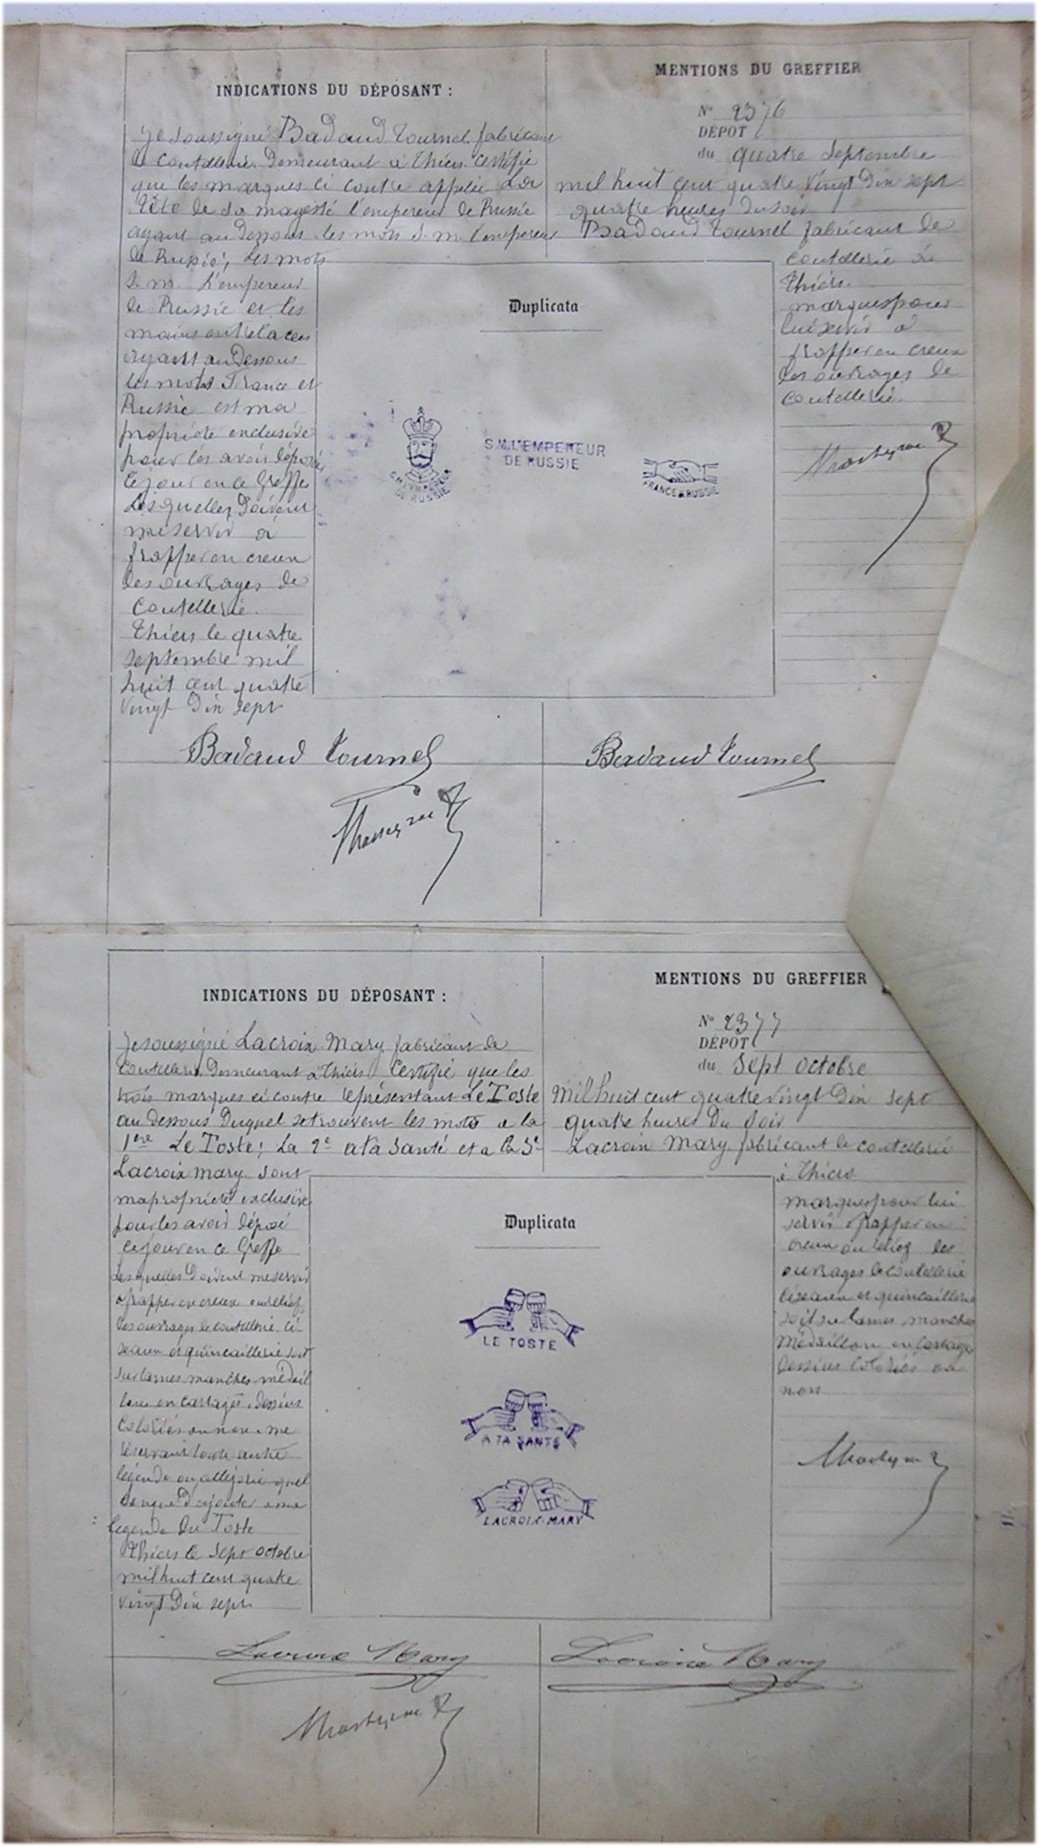 INDICATIONS DU DÉPOSANT :
Je soussigné Badaud Tournel fabricant
de coutellerie Demeurant à Thiers certifie
que les marques ci contre appelée La
Tête de sa magesté l'empereur de Russie
ayant au Dessous les mots S. m. l'empereur
de Russie, Les mots
S. m. L'empereur
de Russie et les
mains entrelacees
ayant au Dessous
les mots France et
Russie est ma
propriété exclusive
pour les avoir déposé
ce jour en ce Greffe
Lesquelles Doivent
me servir à
frapper en creux
les ouvrages de
Coutellerie.
Thiers le quatre
septembre mil
huit cent quatre
vingt Dix sept
MENTIONS DU GREFFIER
N° 2376
DÉPÔT
du quatre Septembre
mil huit cent quatre vingt Dix sept
quatre heures du soir
Badaud Tournel fabricant de
coutellerie à
Thiers.
marques pour
lui servir à
frapper en creux
les ouvrages de
coutellerie.
Duplicata
S.M. L'EMPEREUR
DE RUSSIE
S.M. L'EMPEREUR
DE RUSSIE
FRANCE & RUSSIE
Badaud Tournel
Badaud Tournel
INDICATIONS DU DÉPOSANT :
Je soussigné Lacroix Mary fabricant de
Coutellerie Demeurant à Thiers Certifie que les
trois marques ci contre représentant Le Toste
au dessous Duquel se trouvent les mots a la
1ere Le Toste; La 2e a ta Santé et a la 3e
Lacroix mary sont
ma propriété exclusive
pour les avoir déposé
ce jour en ce Greffe
Lesquelles Doivent me servir
a frapper en creux ou relief
les ouvrages de coutellerie, ci
seaux et quincaillerie soit
sur lames manches médail
lons en cartages Dessins
Coloriés ou non me
réservant toute autre
légende ou allégorie quel
conque D'ajouter à ma
legende du Toste
Thiers le Sept octobre
mil huit cent quatre
vingt Dix sept.
MENTIONS DU GREFFIER
N° 2377
DÉPÔT
du Sept octobre
Mil huit cent quatre vingt Dix sept
quatre heures Du soir
Lacroix Mary fabricant de coutellerie
à Thiers
marques pour lui
servir à frapper en
creux ou relief les
ouvrages de coutellerie
ciseaux et quincaillerie
soit sur lames, manches
Médaillons en cartages
Dessins coloriés ou
non
Duplicata
LE TOSTE
A TA SANTÉ
LACROIX-MARY
Lacroix Mary
Lacroix Mary